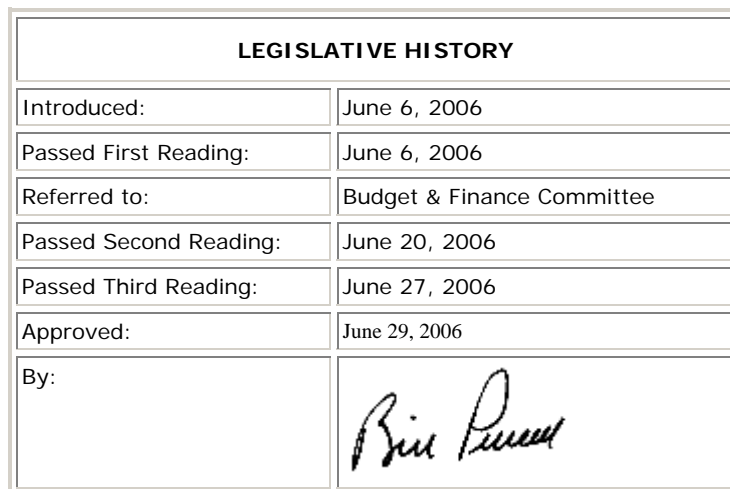 LEGISLATIVE HISTORY
Introduced: June 6, 2006
Passed First Reading: June 6, 2006
Referred to: Budget & Finance Committee
Passed Second Reading: June 20, 2006
Passed Third Reading: June 27, 2006
Approved: June 29, 2006
By: Bill